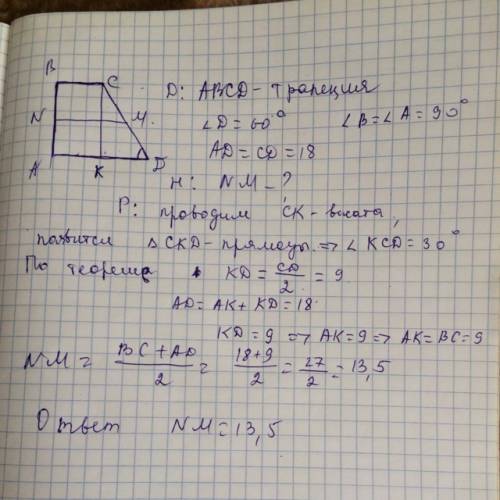 B
C
Д: ABCD - трапеция
N
M
∠D = 60°
∠B = ∠A = 90°
AD = CD = 18
A
K
D
Н: NM - ?
Р: проводим CK - высоты,
появится △ CKD - прямоуг. => ∠ KCD = 30°
По теореме KD = CD/2 = 9
AD = AK + KD = 18
KD = 9 => AK = 9 => AK = BC = 9
NM = (BC + AD)/2 = (18+9)/2 = 27/2 = 13,5
Ответ NM = 13,5